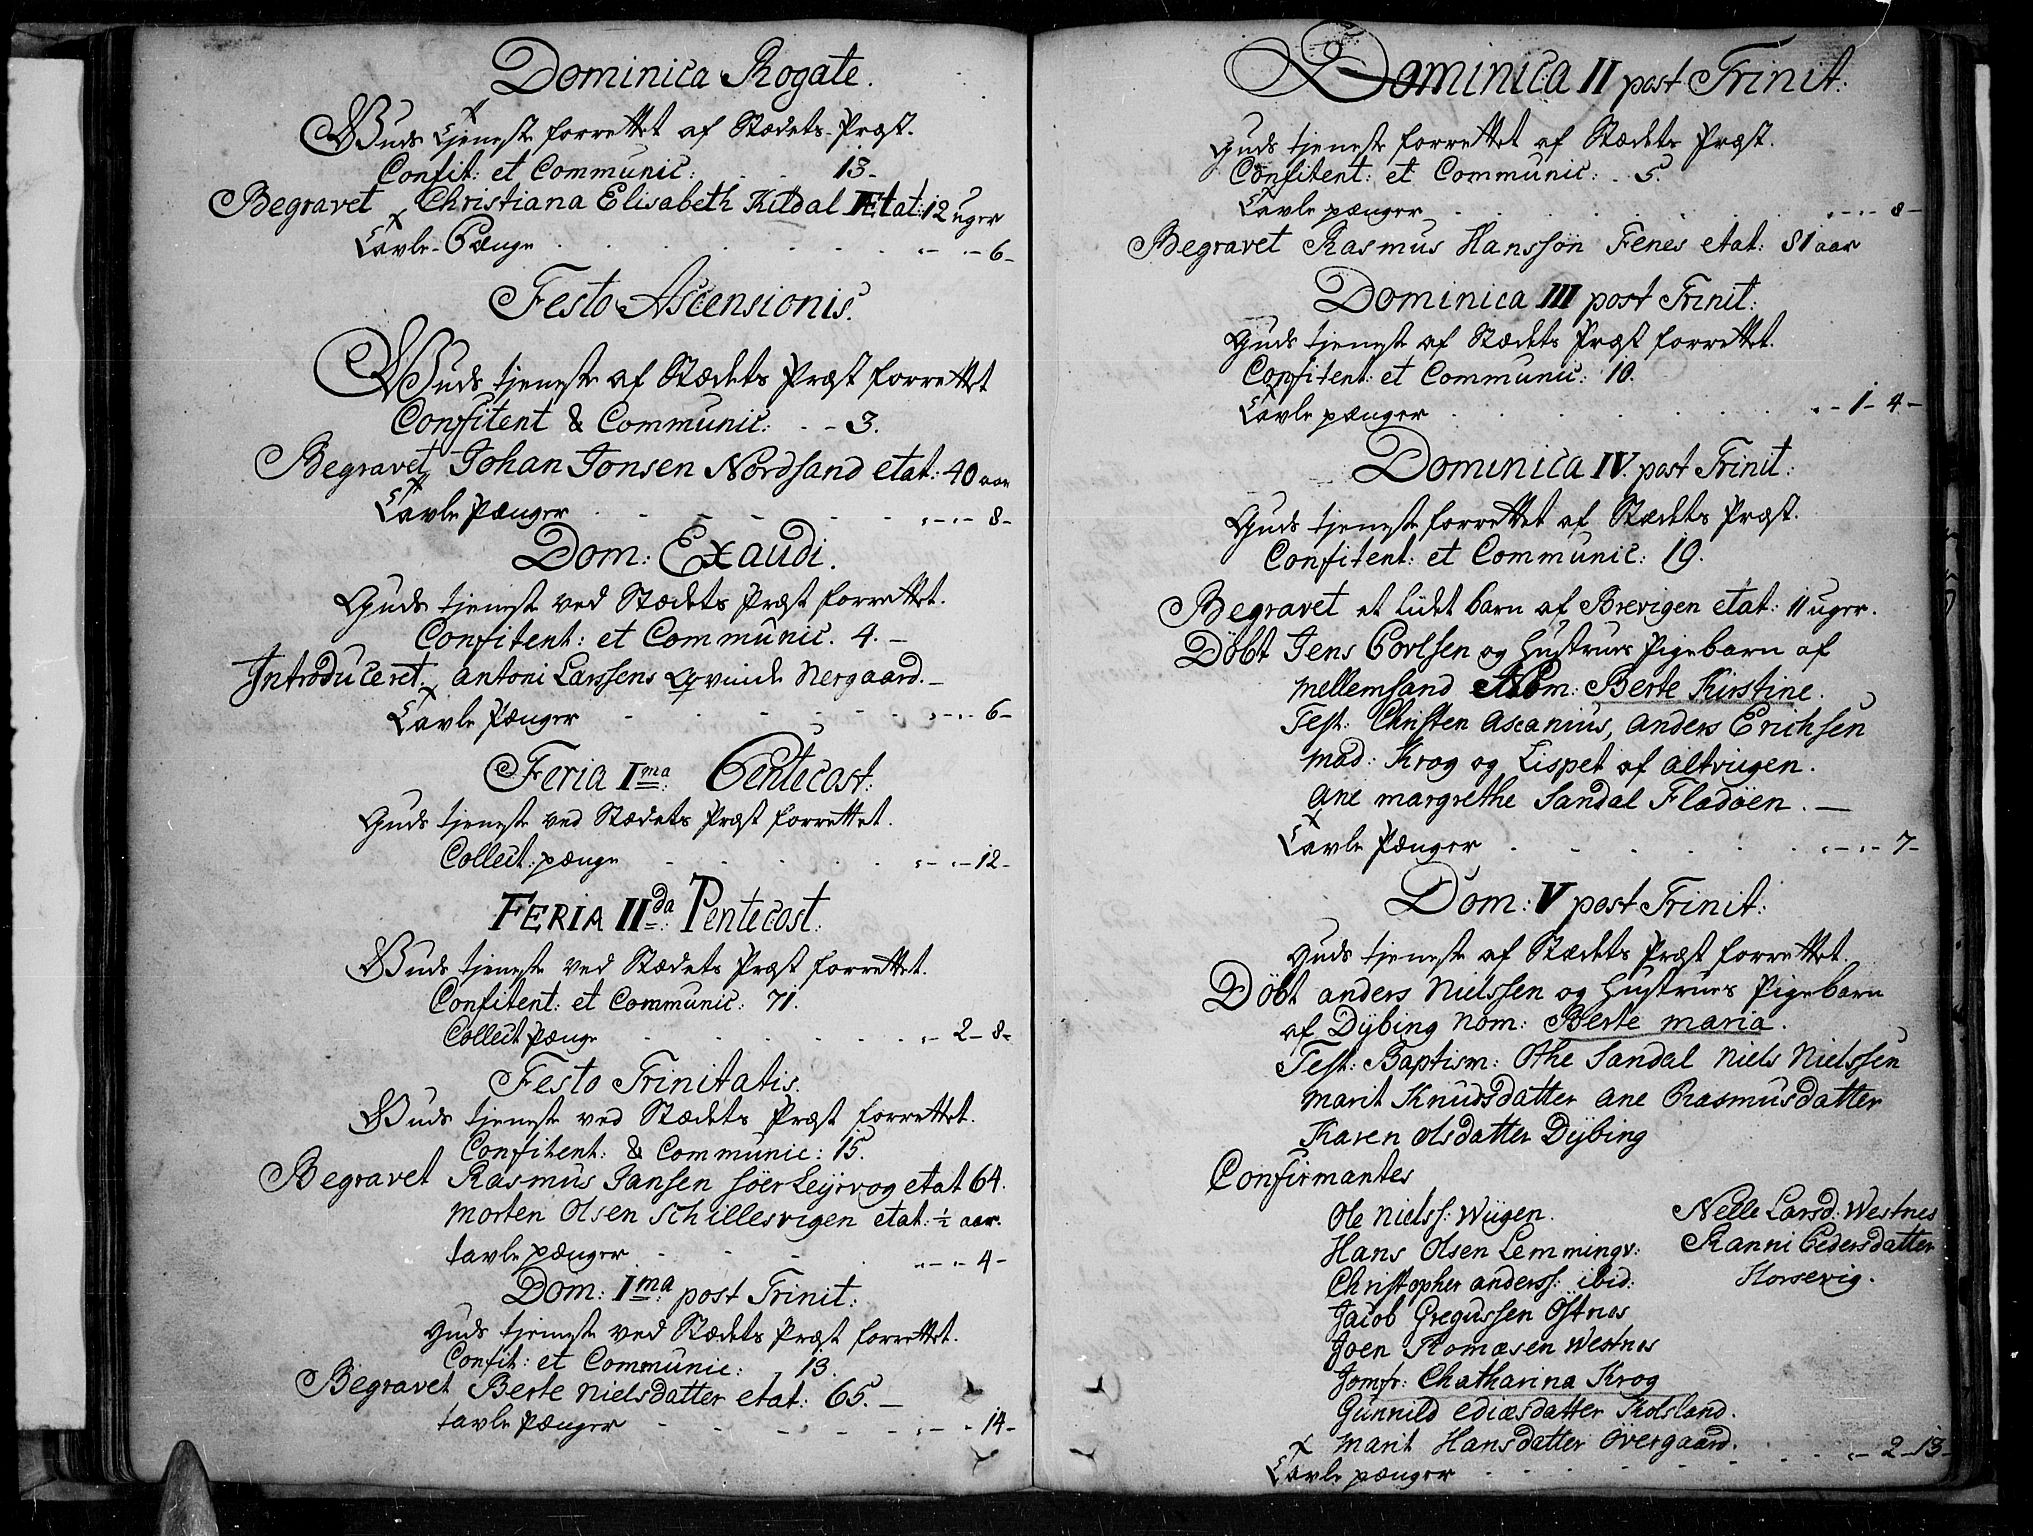 Dominica Rogate.
Guds tjeneste forrettet af Stædets Præst.
Confit: et Communic: 13-
Begravet Christiana Elisabeth Kildal Ætat: 12 uger
Tavle-Penge - 6-
Festo Ascensionis.
Guds tjeneste af Stædets Præst forrettet
Confitent & Communic: - - 3.
Begravet Johan Jonsen Nordsand etat: 40 aar
Tavle Pænger - 8-
Dom: Exaudi.
Guds tjeneste ved Stædets Præst forrettet.
Confitent: et Communic. 4. -
Introduceret. Antoni Larssens Qvinde Nergaard. -
Tavle Pænger - 6-
Feria Ima Pentecost:
Guds tjeneste ved Stædets Præst forrettet.
Collect: pænge - 12-
FERIA IIda Pentecost:
Guds tjeneste ved Stædets Præst forrettet.
Confitent: et Communic: 71.
Collect Pænge - 2-8-
Festo Trinitatis.
Guds tjeneste ved Stædets Præst forrettet.
Confitent: & Communic: 15.
Begravet Rasmus Jansen Söer Leyrvog etat 64.
Morten Olsen Schillesvigen etat: ½ aar.
tavle pænger - 4-
Dom: Ima post Trinit:
Guds tjeneste ved Stædets Præst forrettet.
Confit: et Communic: 13.
Begravet Berte Nielsdatter etat: 65. -
tavle Pænger - 14-
Dominica II post Trinit:
Guds tjeneste forrettet af Stædets Præst.
Confitent: et Communic: 5.
Tavle pænger - 8-
Begravet Rasmus Hanssøn Fenes etat: 81 aar
Dominica III post Trinit:
Guds tjeneste af Stædets Præst forrettet.
Confitent: et Communic: 10.
Tavle pænger - 1-4-
Dominica IV. post Trinit:
Guds tjeneste forrettet af Stædets Præst.
Confitent: et Communic: 19.
Begravet et lidet barn af Brevigen etat: 11 uger.
Döbt Jens Povlsen og Hustrues Pigebarn af
Mellemsand Nom: Berte Kirstine.
Test: Christen Ascanius, Anders Erichsen
Mad: Krog og Lispet af Altviigen.
Ane Margrethe Sandal Fladöen. -
Tavle Pænger - 7-
Dom: V post Trinit:
Guds tjeneste af Stædets Præst forrettet.
Döbt Anders Nielssen og Hustrues Pigebarn
af Dÿbing Nom: Berte Maria.
Test: Baptism: Othe Sandal Niels Nielssen
Marit Knudsdatter Ane Rasmusdatter
Karen Olsdatter Dÿbing
Confirmantes
Ole Nielss: Wiigen. Nelle Larsd: Westnes
Hans Olsen Lemmingv: Ranni Pedersdatter
Christopher Anderss: ibid: Horsevig.
Jacob Gregussen Östnes
Joen Thomæsen Westnes
Jomfr: Chatharina Krog
Gunnild Ediæsdatter Kolsland.
Marit Hansdatter Övergaard.
Tavle pænger - 2-13-